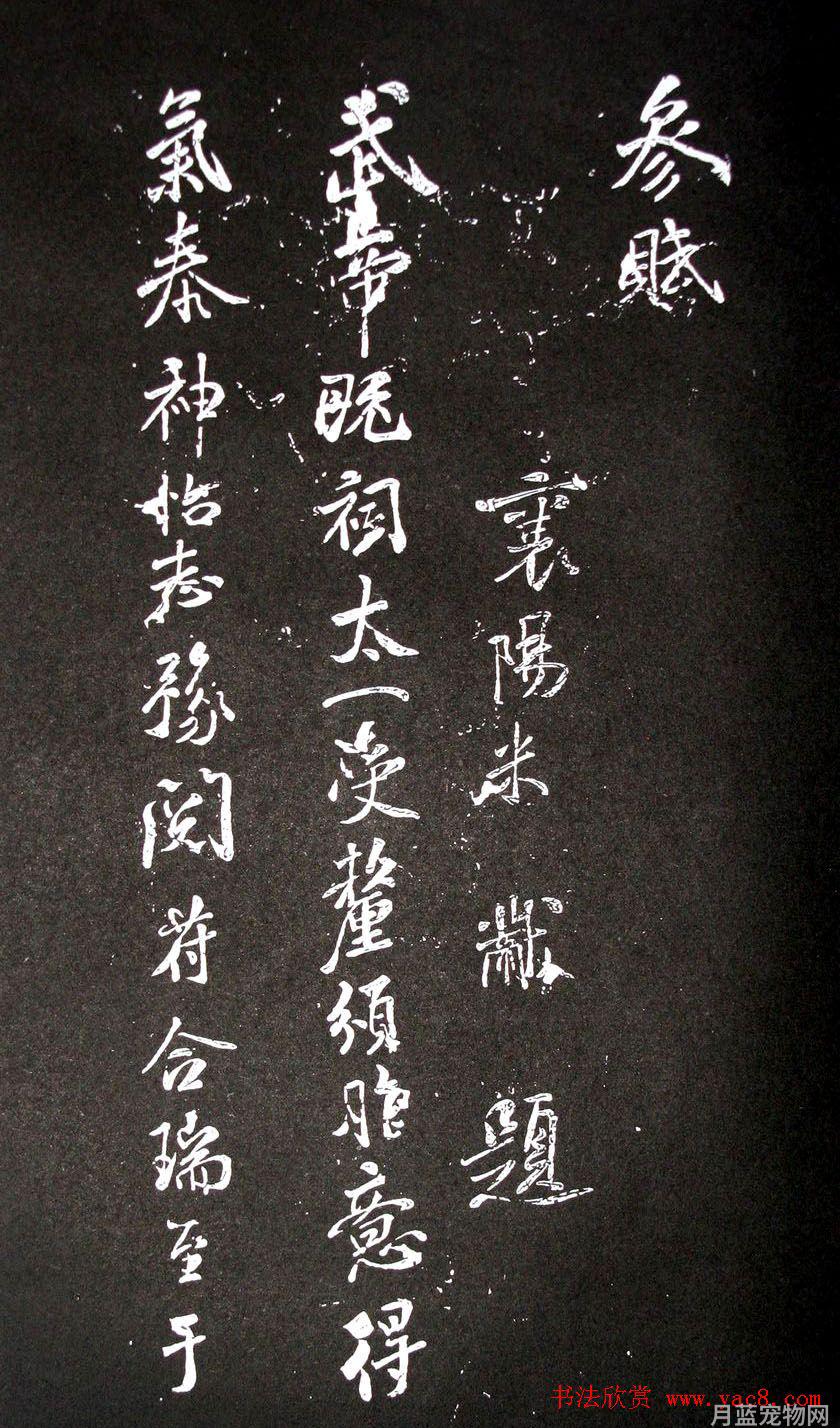 參賦
襄陽米黻題
武帝既祠太一受釐頒胙意得
氣泰神怡志豫閱苻合瑞至于
书法欣赏 www.yac8.com
月蓝宠物网